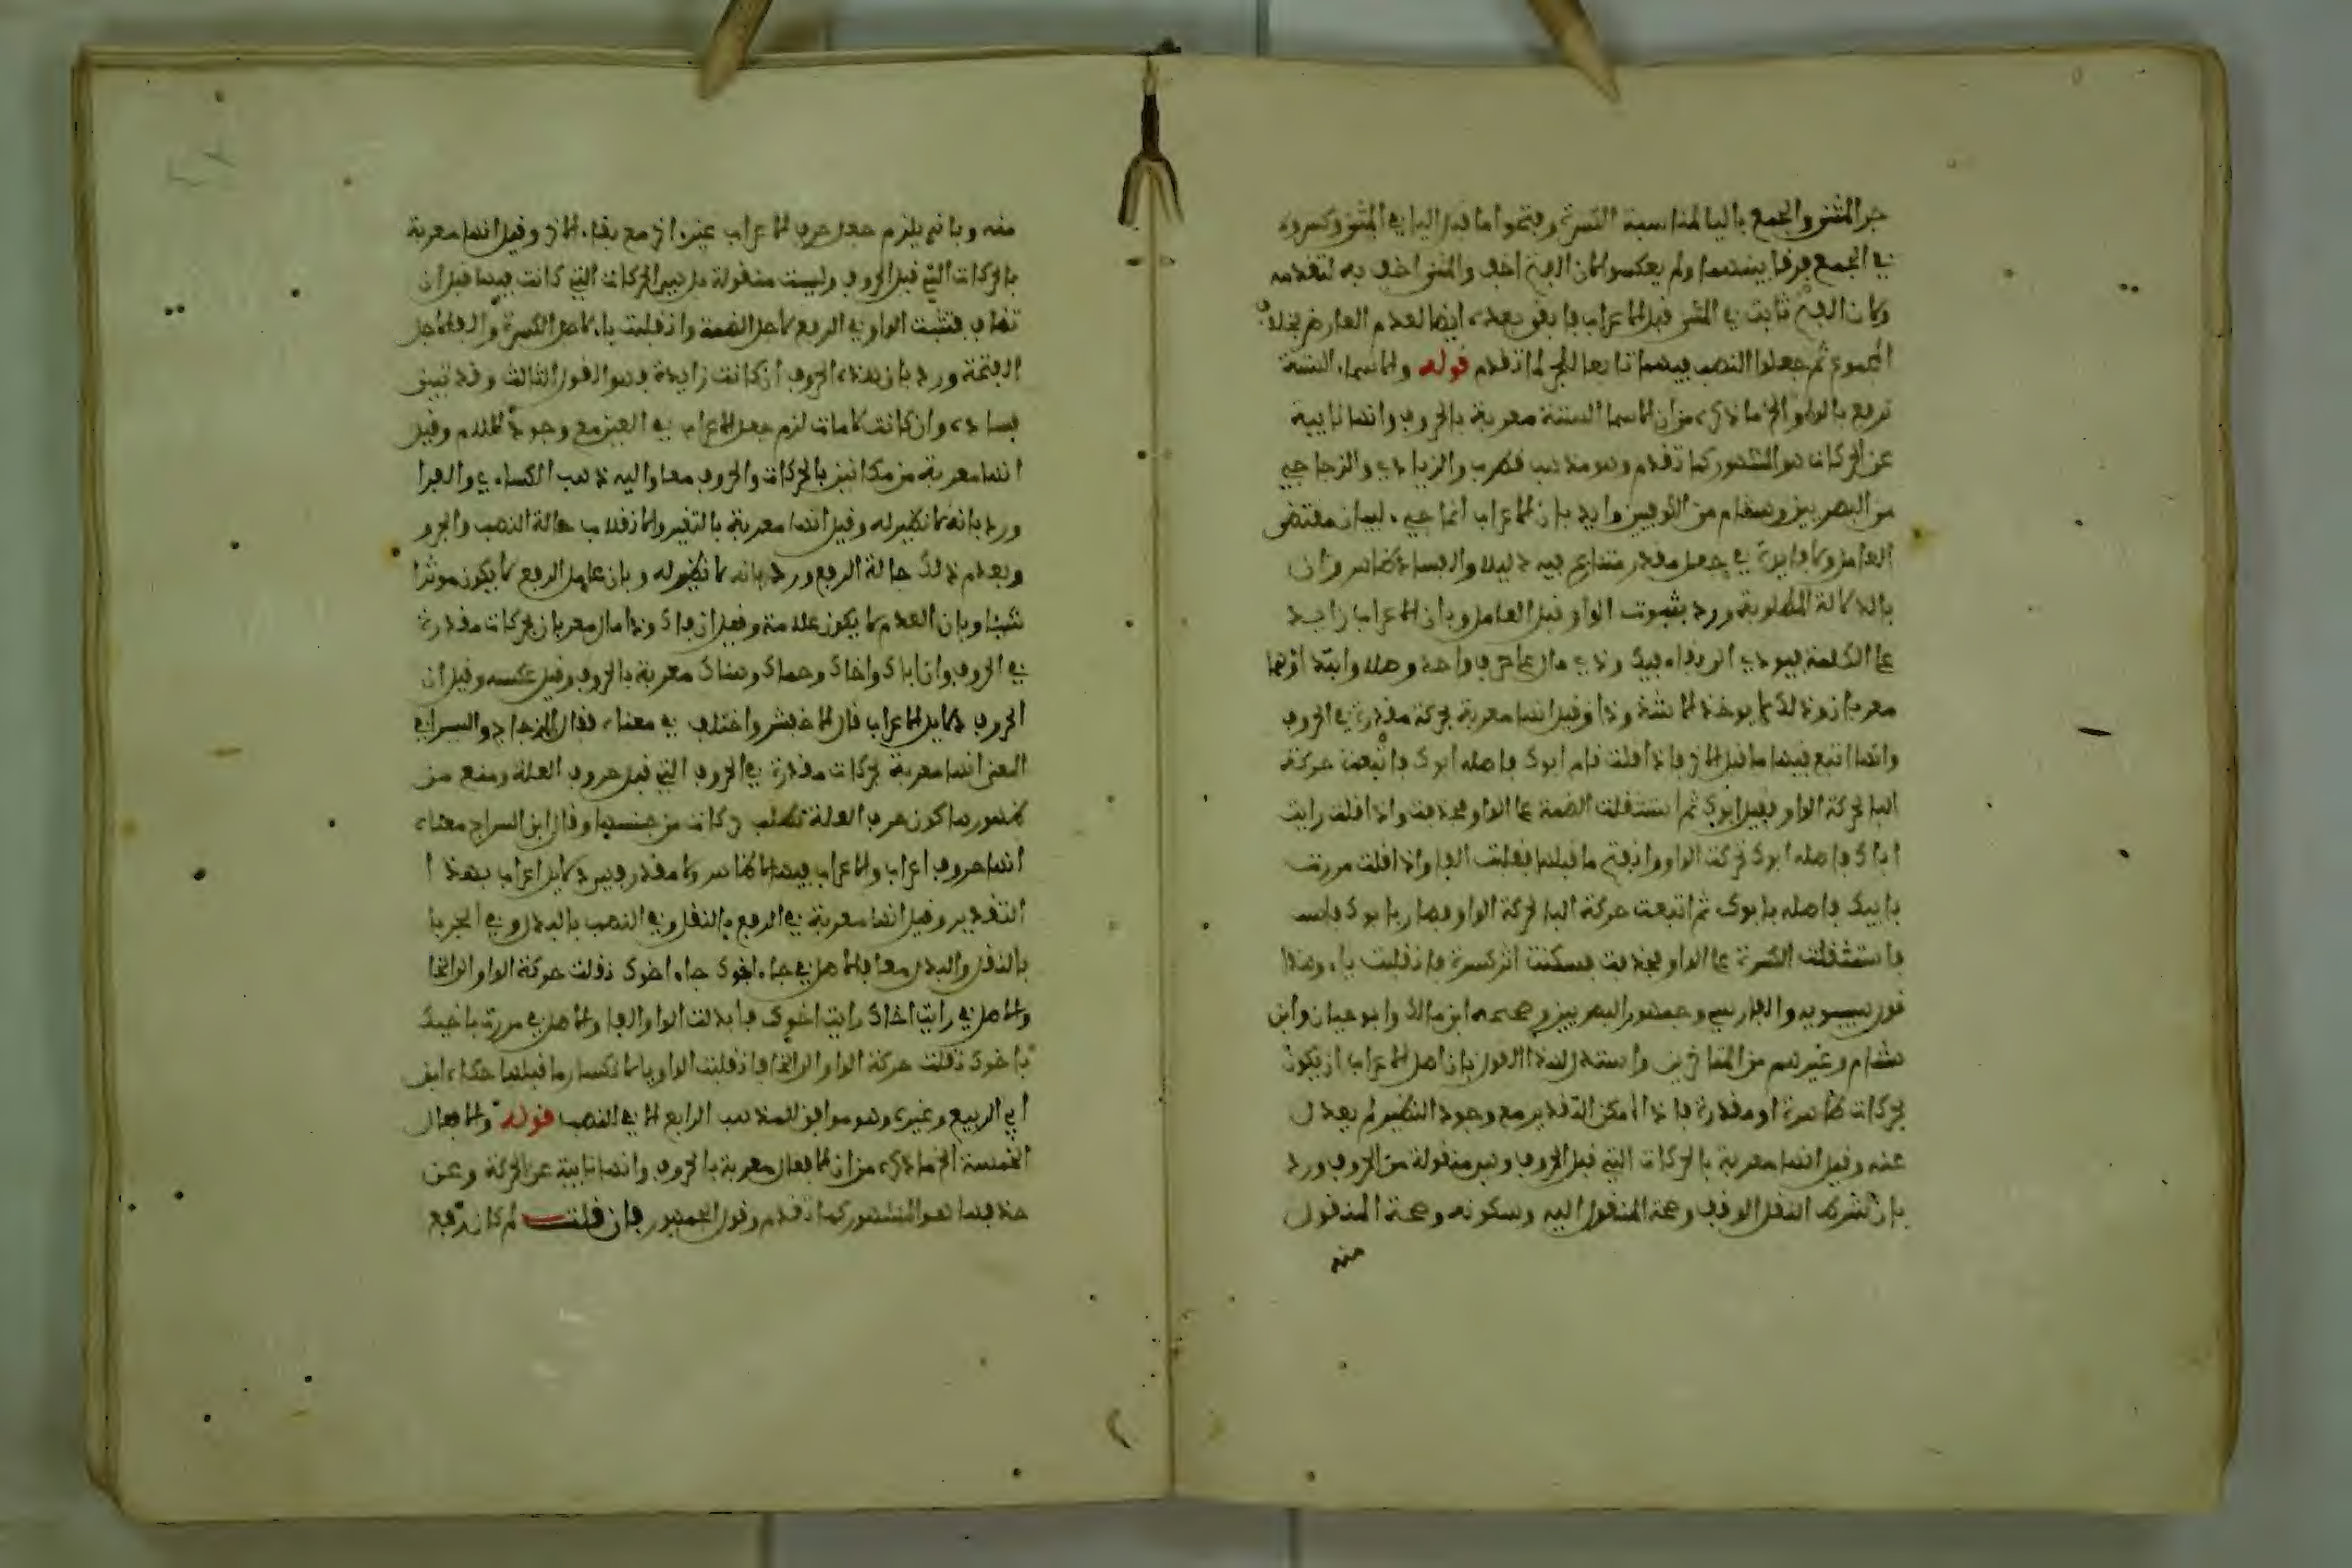 جر المثنى والجمع بالياء لمناسبة الكسرة وفتحوا ما قبل الياء في المثنى وكسروه
في الجمع فرقا بينهما ولم يعكسوا لان الفتح اخف والمثنى اخف به لتقدمه
ولان الفتح ثابت في المثنى قبل الاعراب فابقي بعده ايضا لعدم العارض بخلاف
المجموع ثم جعلوا النصب فيهما تابعا للجر لما تقدم قوله والاسماء الستة
ترفع بالواو الخ ما ذكره من ان الاسما الستة معربة بالحروف وانها نايبة
عن الحركات هو المشهور كما تقدم وهو مذهب قطرب والزيادي والزجاجي
من البصريين وهشام من الكوفيين وايد بان الاعراب انما جيء لبيان مقتضى
العامل ولا فايدة في جعل مقدر متنازع فيه دليلا والفاء ظاهر وان
بالدلالة المطلوبة ورد بثبوت الواو قبل العامل وبان الاعراب زايد
على الكلمة فيودي الى بقاء فيك وذي مال على حرف واحد وصلا وابتداء وهما
معربان وذلك لا يوجد الا شذوذا وقيل انها معربة بحركة مقدرة في الحروف
وانها اتبع فيها ما قبل الاخر فاذا قلت قام ابوك فاصله ابوك فاتبعت حركة
البا لحركة الواو فقيل ابوك ثم استثقلت الضمة على الواو فحذفت واذا قلت رايت
اباك فاصله ابوك تحركت الواو وانفتح ما قبلها فقلبت الفا واذا قلت مررت
بابيك فاصله بابوك ثم اتبعت حركة البا لحركة الواو فصار بابوك
فاستثقلت الكسرة على الواو فحذفت فسكنت اثر كسرة فانقلبت ياء وهذا
قول سيبويه والفارسي وجمهور البصريين وصححه ابن مالك وابو حيان وابن
هشام وغيرهم من المتاخرين واستدل لهذا القول بان اصل الاعراب ان يكون
بحركات ظاهرة او مقدرة فاذا امكن التقدير مع وجود النظير لم يعدل
عنه وقيل انها معربة بالحركات التي قبل الحروف وهي منقولة من الحروف ورد
بان شرط النقل الوقف وصحة المنقول اليه وسكونه وصحة المنقول
منه
منه وبانه يلزم جعل حرف الاعراب غير الاخر مع بقاء الاخر وقيل انها معربة
بالحركات التي قبل الحروف وليست منقولة بل هي الحركات التي كانت فيها قبل ان
تضاف فتثبت الواو في الرفع لاجل الضمة وانقلبت ياء لاجل الكسرة والفا لاجل
الفتحة ورد بان هذه الحروف ان كانت زايدة فهو القول الثالث وقد تبين
فساده وان كانت لامات لزم جعل الاعراب في العين مع وجود اللام وقيل
انها معربة من مكانين بالحركات والحروف معا واليه ذهب الكساءي والفرا
ورد بانه لا نظير له وقيل انها معربة بالتغير والانقلاب حالة النصب والجر و
وبعدم ذلك حالة الرفع ورد بانه لا نظير له وبان عامل الرفع لا يكون موثرا
شيئا وبان العدم لا يكون علامة وقيل ان فاك وذا مال معربان بحركات مقدرة
في الحروف وان اباك واخاك وحماك وهناك معربة بالحروف وقيل عكسه وقيل ان
الحروف دلايل الاعراب قال الاخفش واختلف في معناه فقال الزجاج والسيرافي
المعنى انها معربة بحركات مقدرة في الحروف التي قبل حروف العلة ومنع من
ظهورها كون حرف العلة تطلب حركات من جنسها وقال ابن السراج معناه
انها حروف اعراب والاعراب فيها لا ظاهر ولا مقدر فهي دلايل اعراب بهذا
التقدير وقيل انها معربة في الرفع بالنقل وفي النصب بالبدل وفي الجر با
بالنقل والبدل معا فالاصل في جاء اخوك جاء اخوك نقلت حركة الواو الى الخا
والاصل في رايت اخاك رايت اخوك فابدلت الواو الفا والاصل في مررت باخيك
باخوك نقلت حركة الواو الى الخا فانقلبت الواو يا لانكسار ما قبلها حكاه ابن
ابي الربيع وغيره وهو موافق للمذهب الرابع الا في النصب قوله والافعال
الخمسة الخ ما ذكره من ان الافعال معربة بالحروف وانها نايبة عن الحركة وعن
حذفها هو المشهور كما تقدم وقول الجمهور فان قلت لم كان رفع